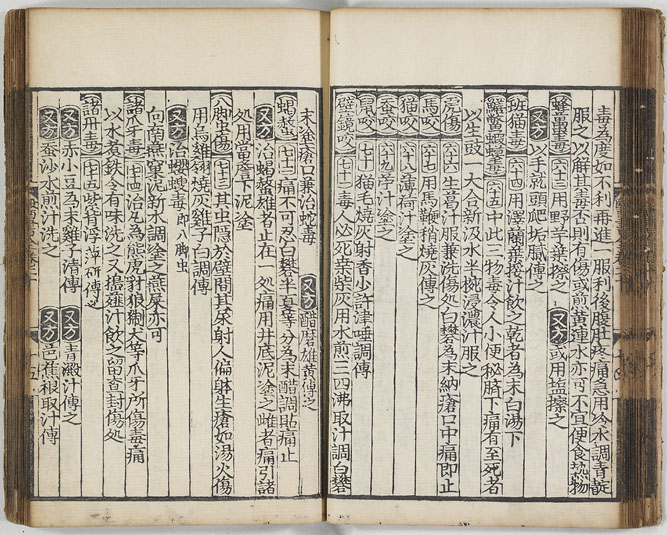 毒為度如不利再進一服利後腹肚疼痛急用冷水調青靛
服之以解其毒否則有傷或煎黃連水亦可不宜便食熱物
蜂蠆毒 六十三 用野芋葉擦之 又方 或用塩擦之
又方 以手就頭爬垢膩傅之
班猫毒 六十四 用澤蘭葉挼汁飲之乾者為末白湯下
鱉蝦蟇毒 六十五 中此三物毒令人小便秘臍下痛有至死者
以生豉一大合新汲水半椀浸濃汁服之
虎傷 六十六 生葛汁服兼洗傷処白礬為末納瘡口中痛即止
馬咬 六十七 用馬鞭稍燒灰傅之
猫咬 六十八 薄荷汁塗之
蚕咬 六十九 苧汁塗之
鼠咬 七十 猫毛燒灰射香小許津唾調傅
壁鏡咬 七十一 毒人必死桒柴灰用水煎三四沸取汁調白礬
末塗瘡口兼治蛇毒 又方 醋磨雄黃傅之
蝎螫 七十二 痛不可忍白礬半夏等分為末醋調貼痛止
又方 治蝎螫雄者止在一処痛用井底泥塗之雌者痛引諸
処用當簷下泥塗
八脚虫傷 七十三 其虫隱於壁間其尿射人偏躰生瘡如湯火傷
用烏雞翎燒灰雞子白調傅
又方 治蠼螋毒 即八脚虫
向南燕窠泥新水調塗之燕屎亦可
諸爪牙毒 七十四 治凢為熊虎豺狼猢犬等爪牙所傷毒痛
以水煮鉄令有味洗之又搗薤汁飲之留查封傷処
諸虫毒 七十五 紫背浮萍研傅之
又方 赤小豆為末雞子清傅 又方 青澱汁傅之
又方 蚕沙水煎汁洗之 又方 芭蕉根取汁傅